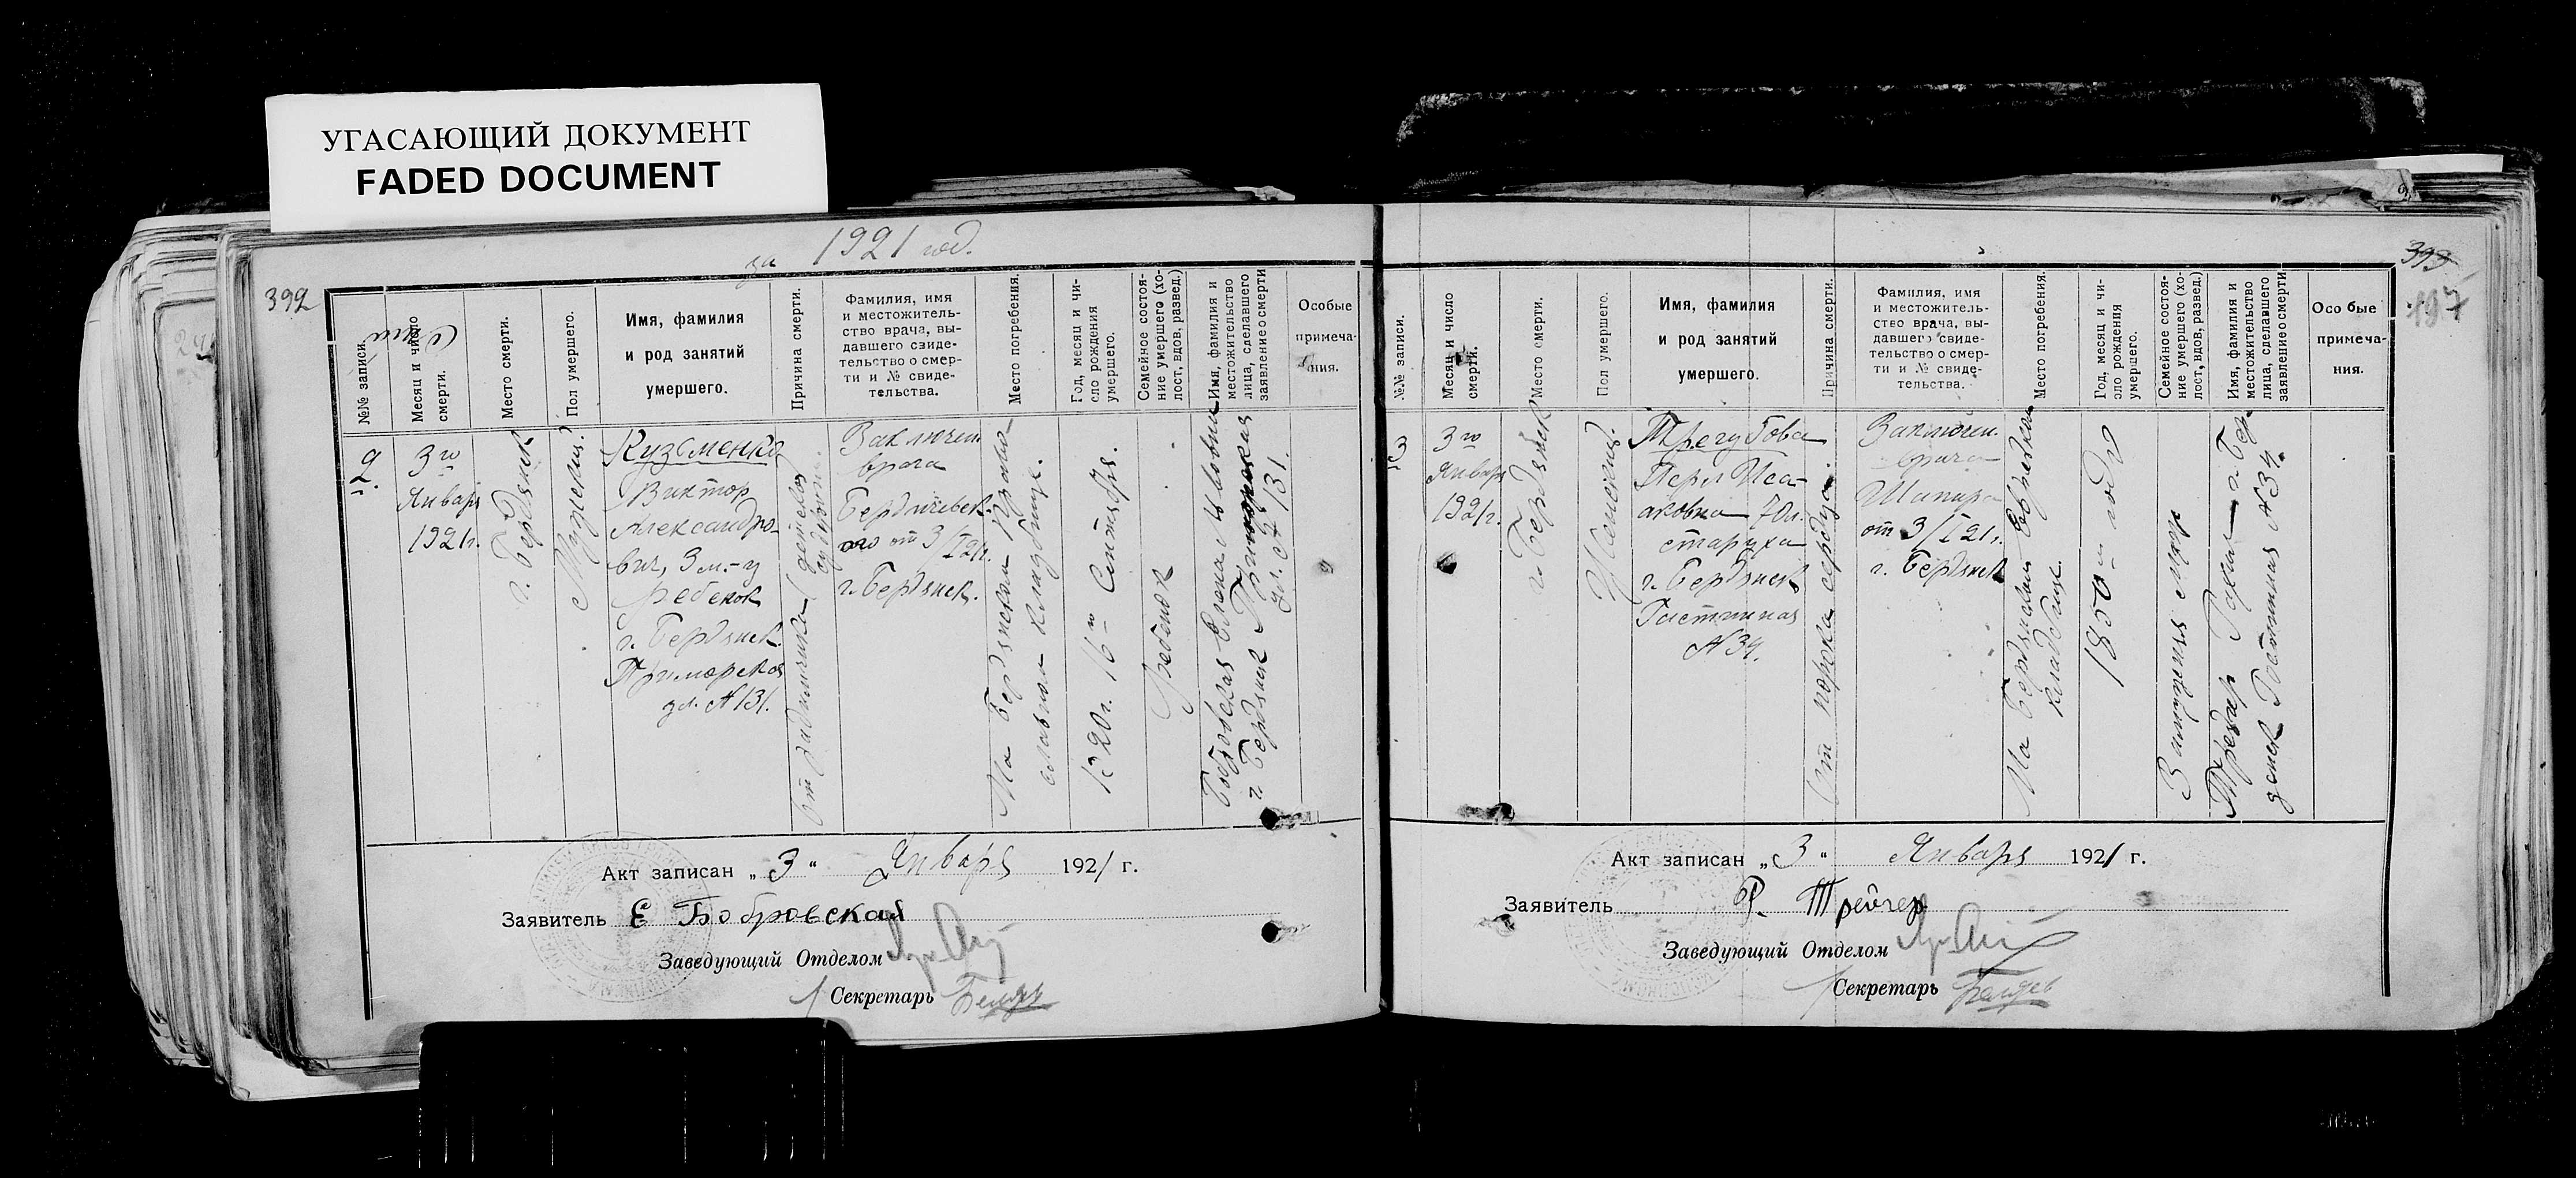 УГАСАЮЩИЙ ДОКУМЕНТ
FADED DOCUMENT
за 1921 год.
392
№№ записи.
Месяц и число
смерти.
Место смерти.
Пол умершего.
Имя, фамилия
и род занятий
умершего.
Причина смерти.
Фамилия, имя
и местожитель-
ство врача, вы-
давшего свиде-
тельство о смер-
ти и № свиде-
тельства.
Место погребения.
Год, месяц и чи-
сло рождения
умершего.
Семейное состоя-
ние умершего (хо-
лост, вдов, развед.)
Имя, фамилия и
местожительство
лица, сделавшего
заявление о смерти
Особые
примеча-
ния.
2
3го
Января
1921г.
г. Бердянск
Мужеский
Кузьменко
Виктор
Александро-
вич, 3 м-ц
ребенок
г. Бердянск
Приморская
ул. №131.
От родимчика (детской
судороги.
Заключен
врача
Бердичевск-
ого от 3/I 21г.
г. Бердянск.
На Бердянском Правос-
лавном кладбище.
1920г. 16го Сентября.
Ребенок
Бобровская Елена Львовна
г. Бердянск Приморская
ул. № 131.
Акт записан „3“ Января 1921 г.
Заявитель Е Бобровская
Заведующий Отделом
Секретарь
393
197
№№ записи.
Месяц и число
смерти.
Место смерти.
Пол умершего.
Имя, фамилия
и род занятий
умершего.
Причина смерти.
Фамилия, имя
и местожитель-
ство врача, вы-
давшего свиде-
тельство о смер-
ти и № свиде-
тельства.
Место погребения.
Год, месяц и чи-
сло рождения
умершего.
Семейное состоя-
ние умершего (хо-
лост, вдов, развед.)
Имя, фамилия и
местожительство
лица, сделавшего
заявление о смерти
Особые
примеча-
ния.
3
3го
Января
1921г.
г. Бердянск
Женский.
Трегубова
Перл Иса-
аковна 70л.
старуха
г. Бердянск
Гостинная
№34.
От порока сердца.
Заключен.
врача
Шапиро
от 3/I 21г.
г. Бердянск
На Бердянском Еврейском
кладбище
1850м году
Замужняя
Трейгер г. Бер-
дянск Гостинная №34.
Акт записан „3“ Января 1921 г.
Заявитель Р. Трейгер
Заведующий Отделом
Секретарь